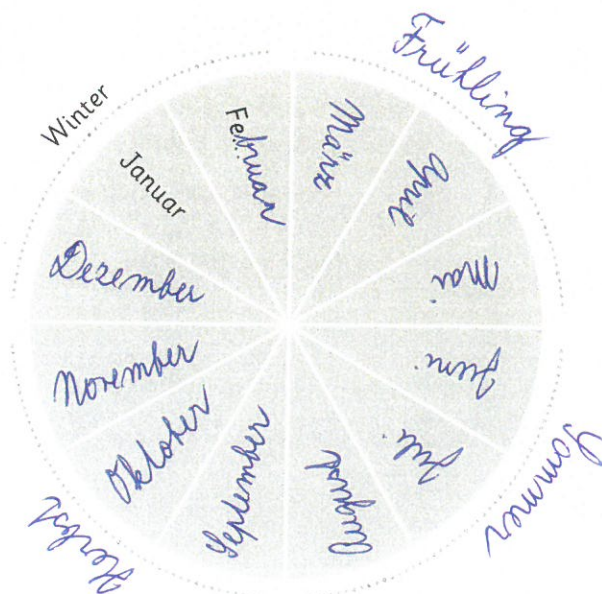 Winter
Januar
Februar
März
April
Mai
Juni
Juli
August
September
Oktober
November
Dezember
Frühling
Sommer
Herbst